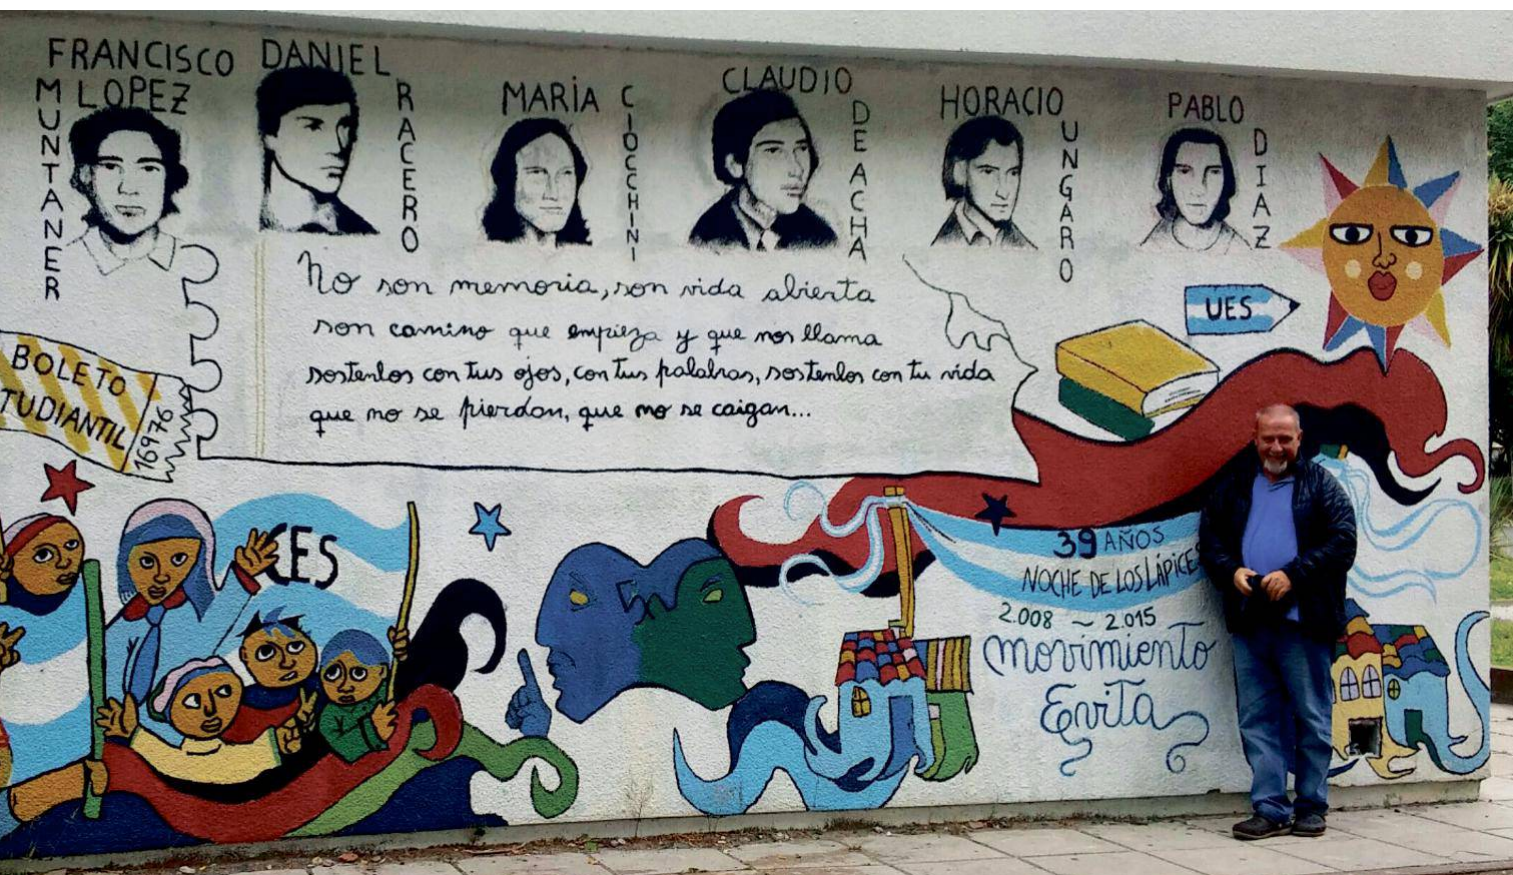 FRANCISCO
LOPEZ
MUNTANER
DANIEL
RACERO
MARÍA
CIOCCHINI
CLAUDIO
DE ACHA
HORACIO
UNGARO
PABLO
DIAZ
No son memoria, son vida abierta
son camino que empieza y que nos llama
sostenlos con tus ojos, con tus palabras, sostenlos con tu vida
que no se pierdan, que no se caigan...
UES
BOLETO
TUDIANTIL
16976
CES
39 AÑOS
NOCHE DE LOS LÁPICES
2.008 ~ 2.015
Movimiento
Evita